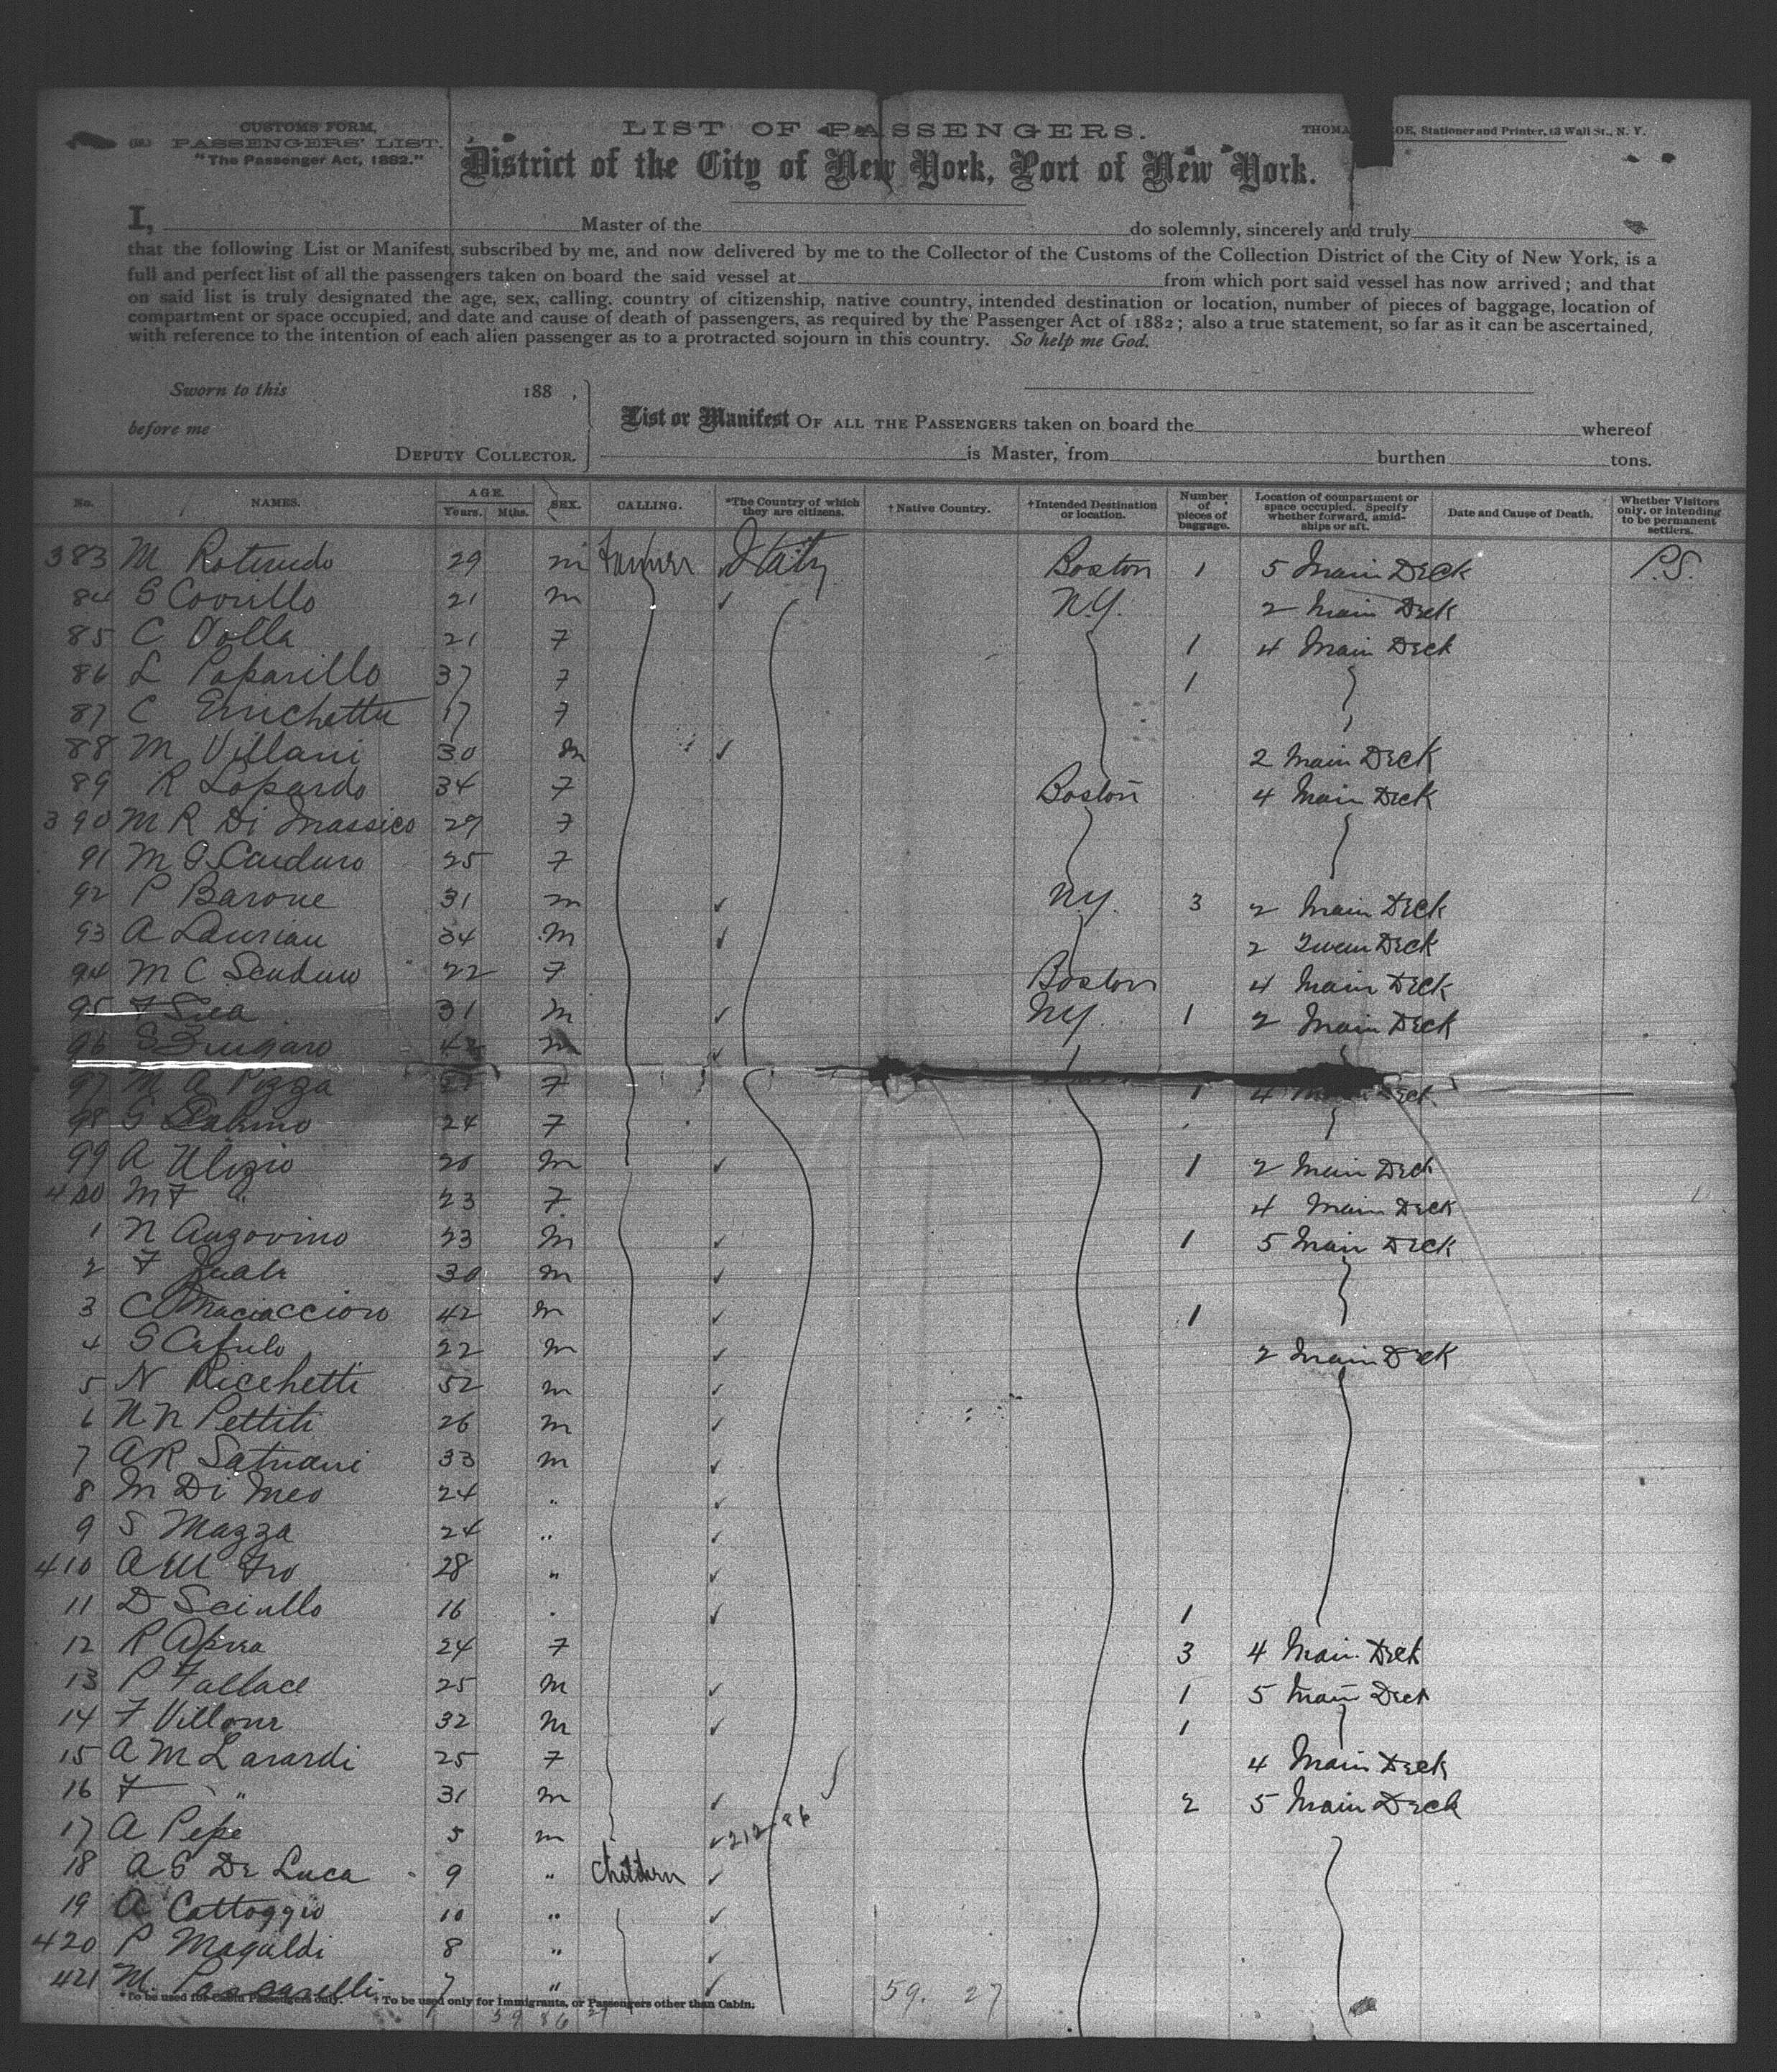 CUSTOMS FORM,
PASSENGERS' LIST.
"The Passenger Act, 1882."
LIST OF PASSENGERS.
Stationer and Printer, 13 Wall St., N. Y.
District of the City of New York, Port of New York.
I, Master of the do solemnly, sincerely and truly
that the following List or Manifest, subscribed by me, and now delivered by me to the Collector of the Customs of the Collection District of the City of New York, is a
full and perfect list of all the passengers taken on board the said vessel at from which port said vessel has now arrived; and that
on said list is truly designated the age, sex, calling, country of citizenship, native country, intended destination or location, number of pieces of baggage, location of
compartment or space occupied, and date and cause of death of passengers, as required by the Passenger Act of 1882; also a true statement, so far as it can be ascertained,
with reference to the intention of each alien passenger as to a protracted sojourn in this country. So help me God.
Sworn to this 188 ,
before me
DEPUTY COLLECTOR.
List or Manifest OF ALL THE PASSENGERS taken on board the whereof
is Master, from burthen tons.
No. NAMES. AGE. Years. Mths. SEX. CALLING. *The Country of which they are citizens. †Native Country. †Intended Destination or location. Number of pieces of baggage. Location of compartment or space occupied. Specify whether forward, amidships or aft. Date and Cause of Death. Whether Visitors only, or intending to be permanent settlers.
383 M Rotundo 29 m Farmer Italy Boston 1 5 Main Deck P.S.
84 S 21 m N.Y. 2 Main Deck
85 C 21 F 1 4 Main Deck
86 L Paparillo 37 F 1
87 C Errichetta 17 F
88 M Villani 30 m 2 Main Deck
89 R Lopardo 34 F Boston 4 Main Deck
390 M R Di 29 F
91 M 25 F
92 P Barone 31 m N.Y. 3 2 Main Deck
93 A 34 M 2 Deck
94 M C 22 F Boston 4 Main Deck
95 F 31 m N.Y. 1 2 Main Deck
96 S m
97 M A Pizza F 1 4
98 24 F
99 A Ulizio M 1 2 Main Deck
400 M F " 23 F 4 Main Deck
1 N Angovino 23 M 1 5 Main Deck
2 F 30 m
3 C 42 m 1
4 S Cafulo 22 m 2 Main Deck
5 N Ricchetti 52 m
6 N N Pettiti 26 m
7 A R 33 m
8 M Di Meo 24 "
9 S Mazza 24 "
410 A M 28 "
11 D Sciullo 16 " 1
12 R Aprea 24 F 3 4 Main Deck
13 P Fallace 25 m 1 5 Main Deck
14 F Villone 32 m 1
15 A M Lavardi 25 F 4 Main Deck
16 F " 31 m 2 5 Main Deck
17 A Pepe 5 m
18 A S De Luca 9 " Children
19 A Cottoggio 10 "
420 P Magaldi 8 "
421 M. 7 " 59. 27
*To be used for Cabin Passengers only. †To be used only for Immigrants, or Passengers other than Cabin.